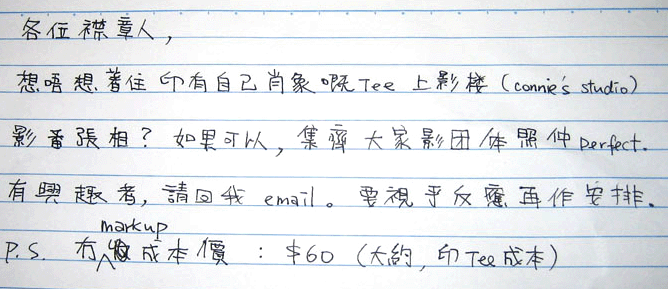 各位襟章人,
想唔想着住印有自己肖象嘅Tee上影楼 (connie's studio)
影番張相? 如果可以, 集齊大家影团体照仲perfect.
有興趣者, 請回我email。要視乎反應再作安排.
P.S. 冇markup 成本價 : $60 (大約, 印Tee成本)